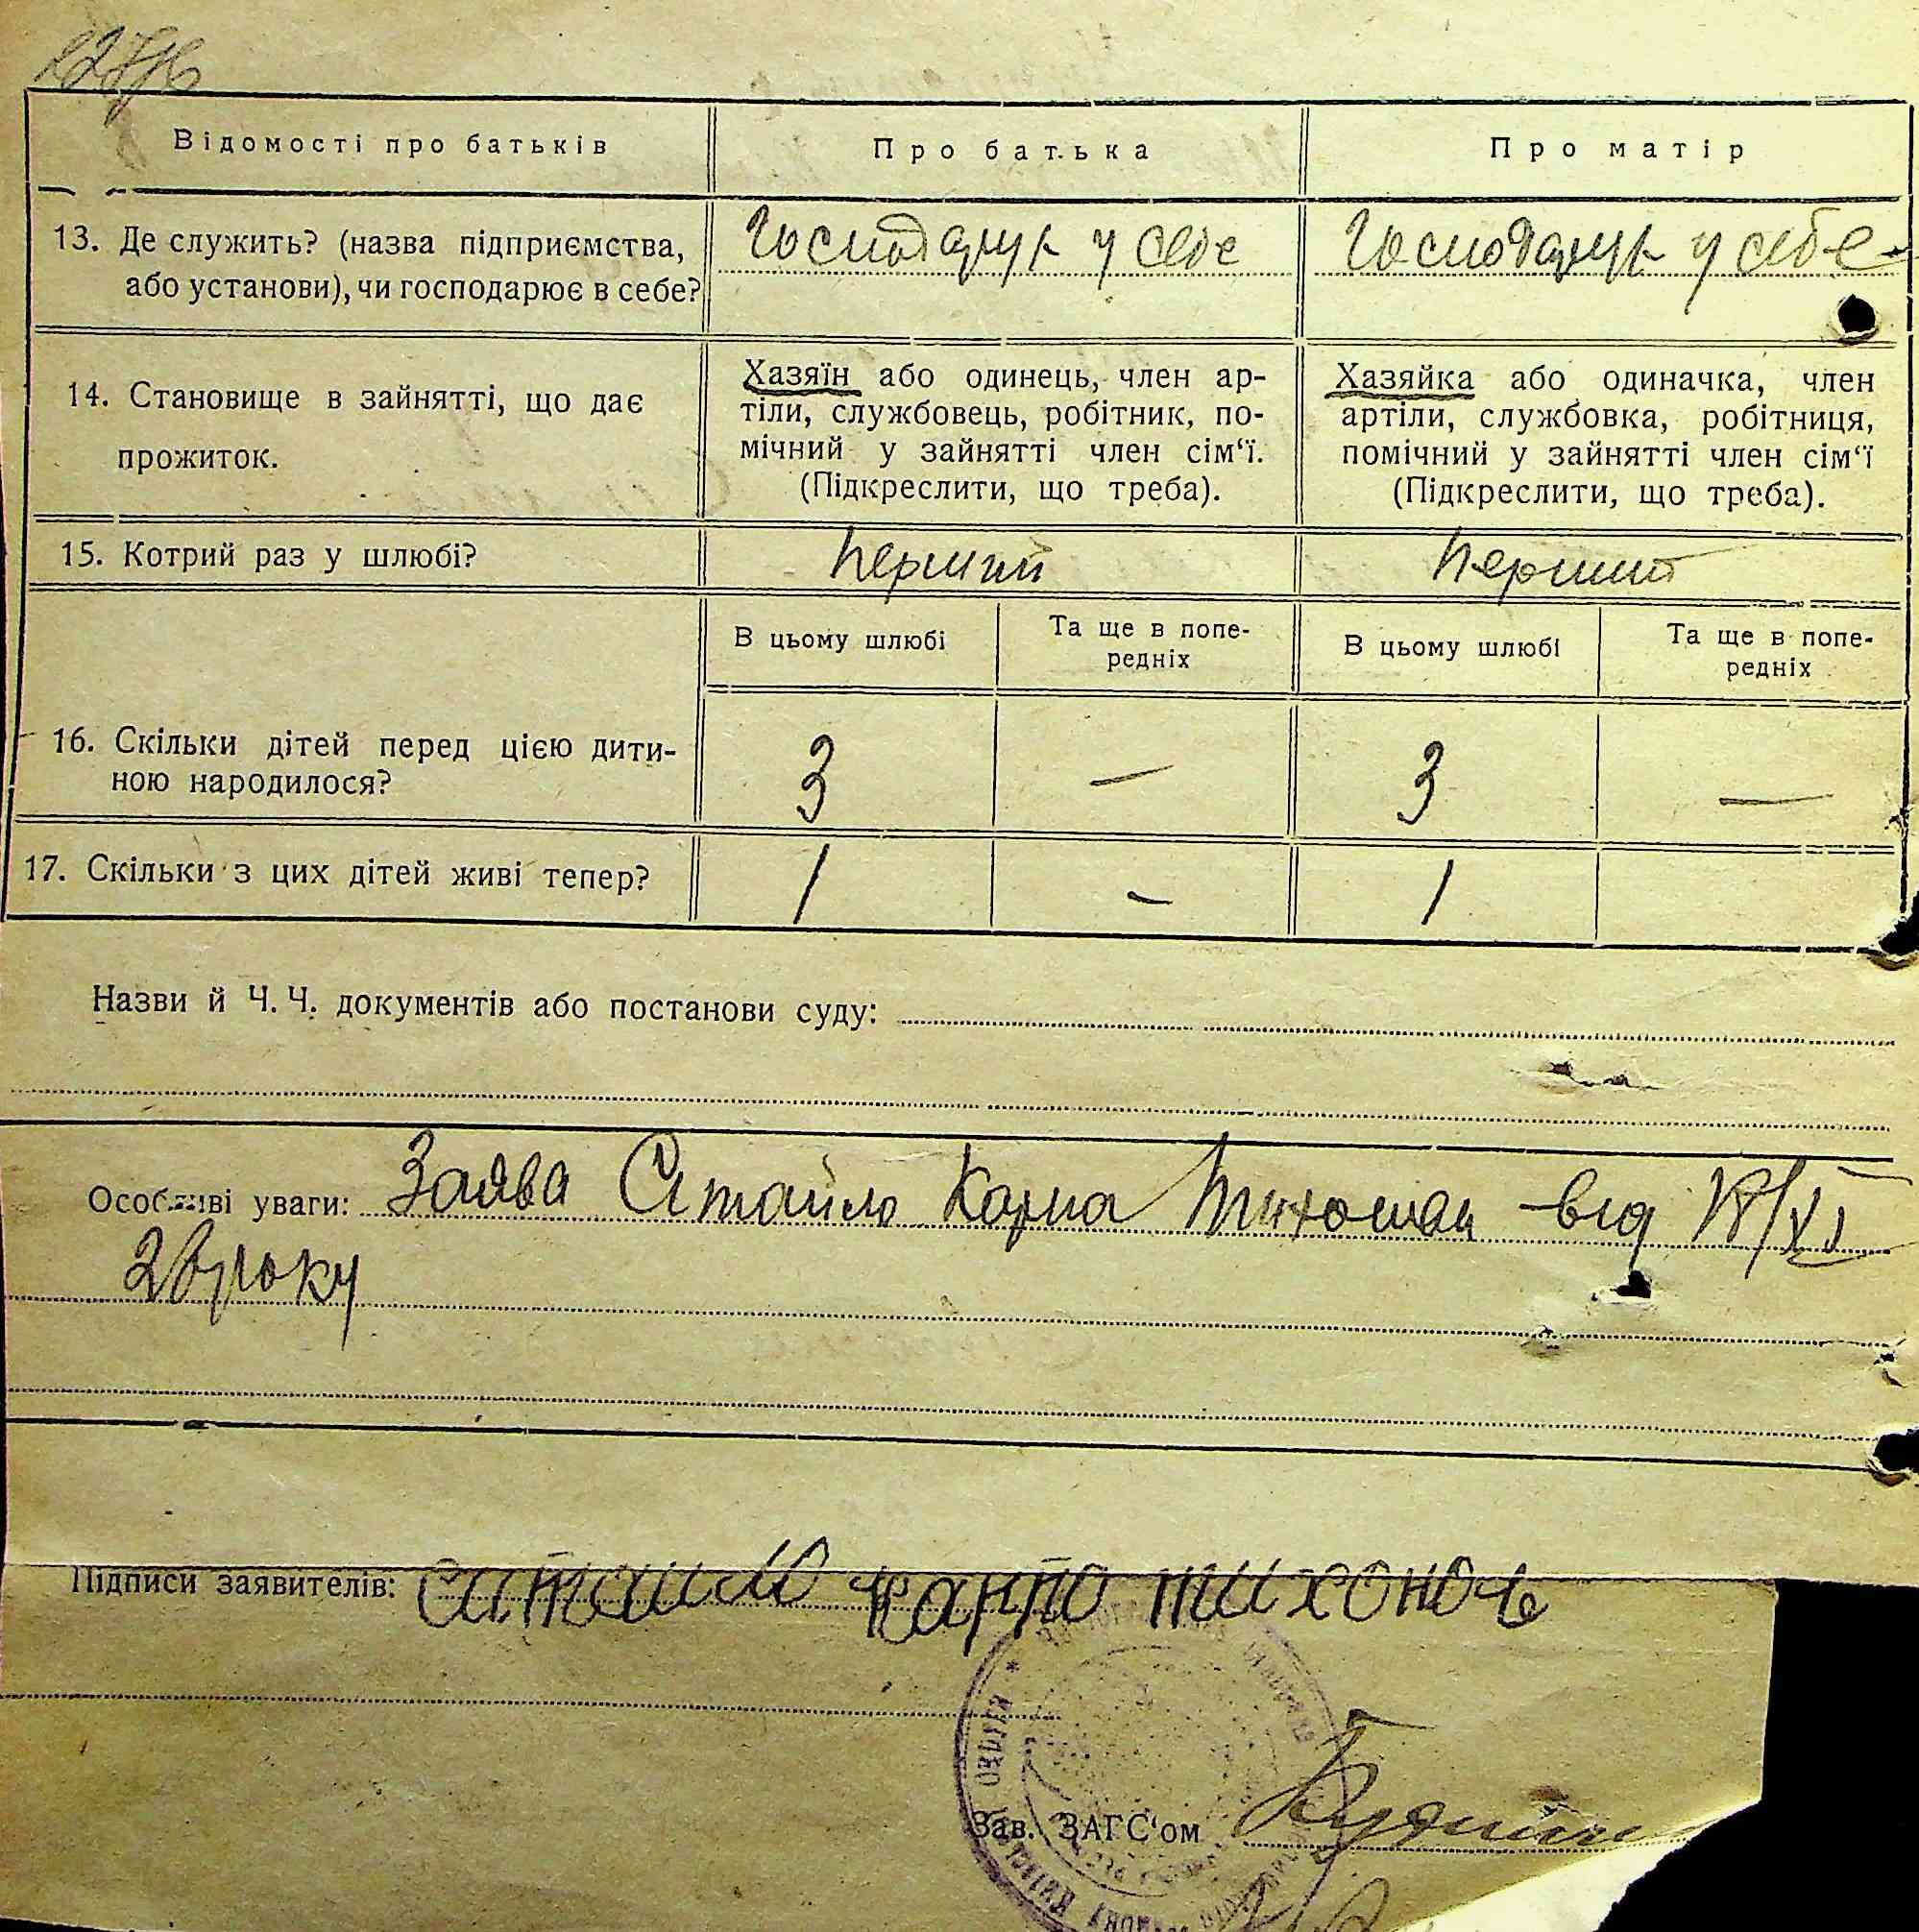 Відомості про батьків
Про батька
Про матір
13. Де служить? (назва підприємства,
або установи), чи господарює в себе?
Господарук у себе
Господарук у себе
14. Становище в зайнятті, що дає
прожиток.
Хазяїн або одинець, член ар-
тіли, службовець, робітник, по-
мічний у зайнятті член сім'ї.
(Підкреслити, що треба).
Хазяйка або одиначка, член
артіли, службовка, робітниця,
помічний у зайнятті член сім'ї
(Підкреслити, що треба).
15. Котрий раз у шлюбі?
Перший
Перший
В цьому шлюбі
Та ще в попе-
редніх
В цьому шлюбі
Та ще в попе-
редніх
16. Скільки дітей перед цією дити-
ною народилося?
3 — 3 —
17. Скільки з цих дітей живі тепер?
1 - 1
Назви й Ч. Ч. документів або постанови суду:
Особливі уваги: Заява Ситайло Карпа від
року
Підписи заявителів: ситайло карпо тихонов
Зав. ЗАГС'ом